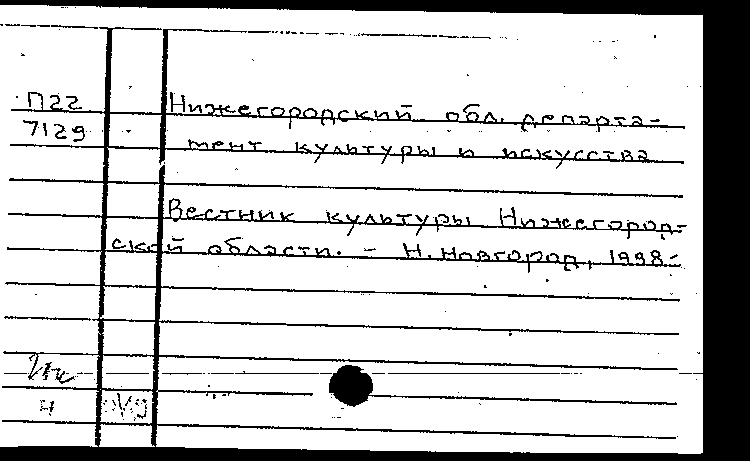 П22 Нижегородский обл. департа-
7129 мент культуры и искусства
Вестник культуры Нижегород-
ской области. - Н.Новгород, 1998-